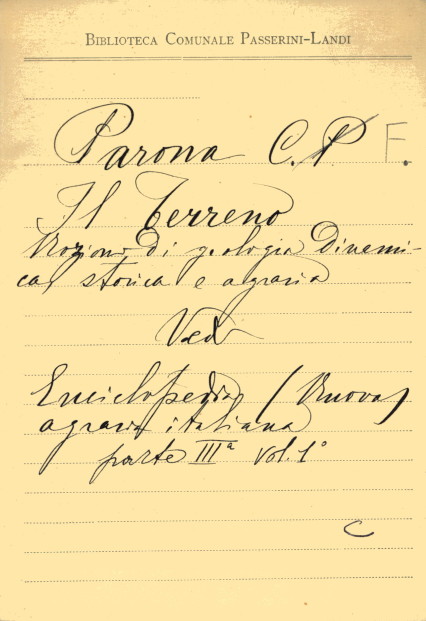 BIBLIOTECA COMUNALE PASSERINI-LANDI
Parona C. P F.
Il Terreno
Nozioni di geologia Dinami-
ca, storica e agraria
Vedi
Enciclopedia (Nuova)
agraria italiana
parte IIIª vol. 1º
C